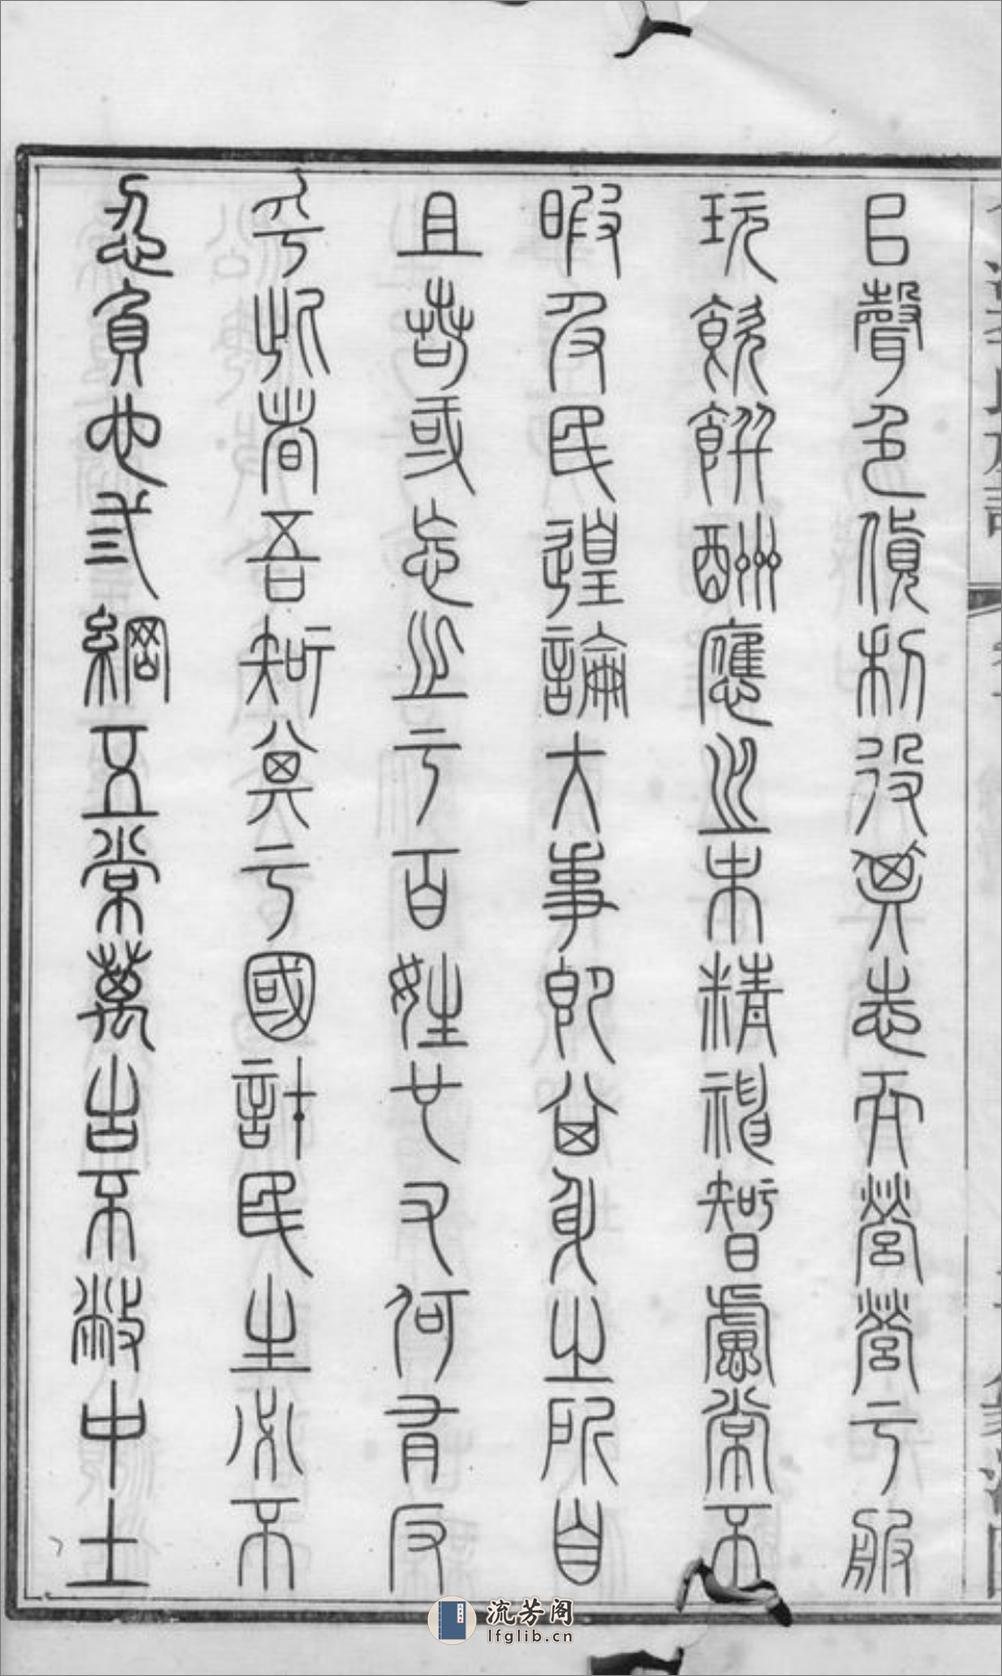 以聲色貨利役其志而營營于服
玩飲餅酬應之末精神智慮常不
暇及民遑論大事即曾身之所自
且若或忘之于百姓也又何有反
乎此者吾知其于國計民生必不
忍負也三綱五常萬古不敝中土
流芳阁
lfglib.cn